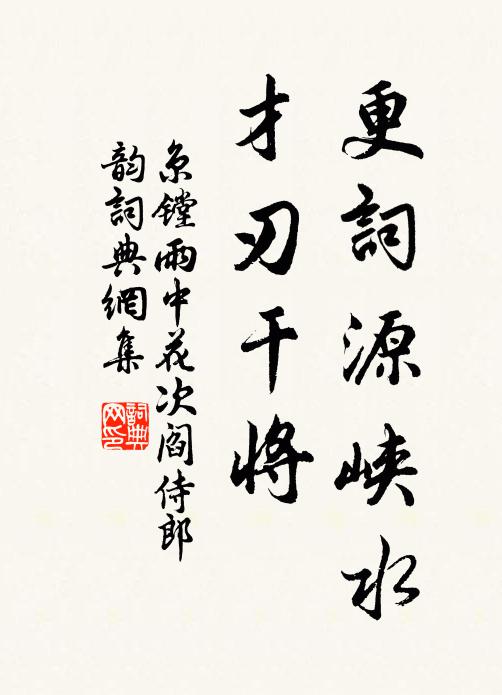 更詞源峽水
才刃干将
京鏜雨中花次閻侍郎
韵詞典網集
詞典
网印